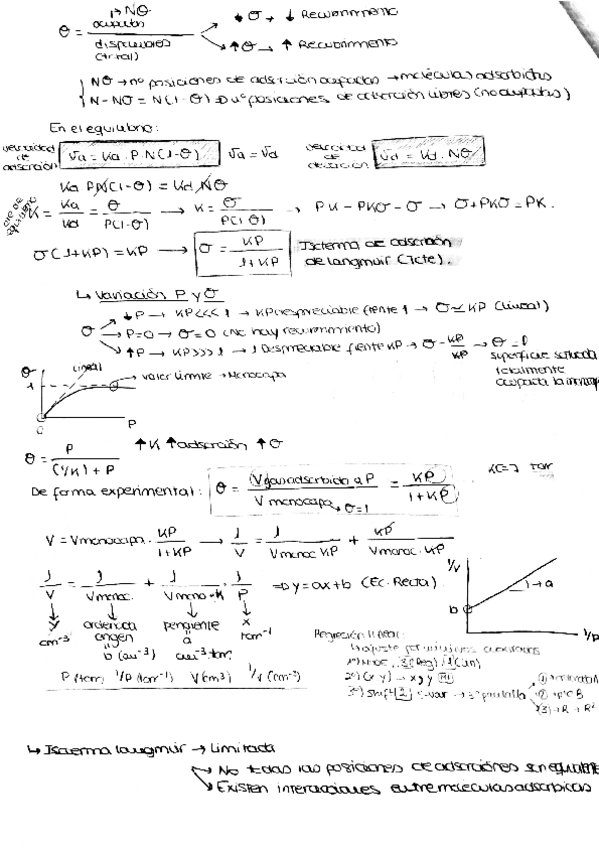 ↳ Nθ
ocupados
θ = ―――
disponibles
(total)
↓ θ → ↓ Recubrimiento
↑ θ → ↑ Recubrimiento
Nθ → nº posiciones de adsorción ocupadas → moléculas adsorbidas
N - Nθ = N(1-θ) ⇒ nº posiciones de adsorción libres (no ocupadas)
En el equilibrio:
velocidad de adsorción
Va = Ka · P · N(1-θ)
Va = Vd
velocidad de
Vd = Kd · Nθ
Ka P N(1-θ) = Kd Nθ
cte de equilibrio
K = Ka/Kd = θ/P(1-θ) → K = θ/P(1-θ) → PK - PKθ = θ → θ + PKθ = PK.
θ(1+KP) = KP → θ = KP/1+KP
Isoterma de adsorción
de Langmuir (Tcte).
↳ Variación P y θ
↓P → KP<<<1 → KP despreciable frente 1 → θ ≃ KP (lineal)
θ → P=0 → θ=0 (No hay recubrimiento)
↑P → KP>>>1 → 1 Despreciable frente KP → θ = KP/KP → θ = 1
superficie saturada
totalmente
ocupada la monocapa
θ
lineal
1
valor límite → Monocapa
0
P
θ = P/(1/K)+P
↑K ↑adsorción ↑θ
De forma experimental: θ = (V gas adsorbido a P)/V monocapa = KP/1+KP
↳ θ=1
V = Vmonocapa · KP/1+KP → 1/V = 1/Vmonoc KP + KP/Vmonoc. KP
1/V = 1/Vmonoc. + 1/Vmono·K · 1/P ⇒ y = ax+b (Ec. Recta)
y ordenada origen pendiente x
cm⁻³ b (cm⁻³) a cm⁻³·torr torr⁻¹
P (torr) 1/P (torr⁻¹) V (cm³) 1/V (cm⁻³)
1/V
b
a
1/P
Regresión lineal:
↳ ajuste por mínimos cuadrados
↳ Isoterma Langmuir → Limitada
↳ No todas las posiciones de adsorción son equivalente
↳ Existen interacciones entre moléculas adsorbidas